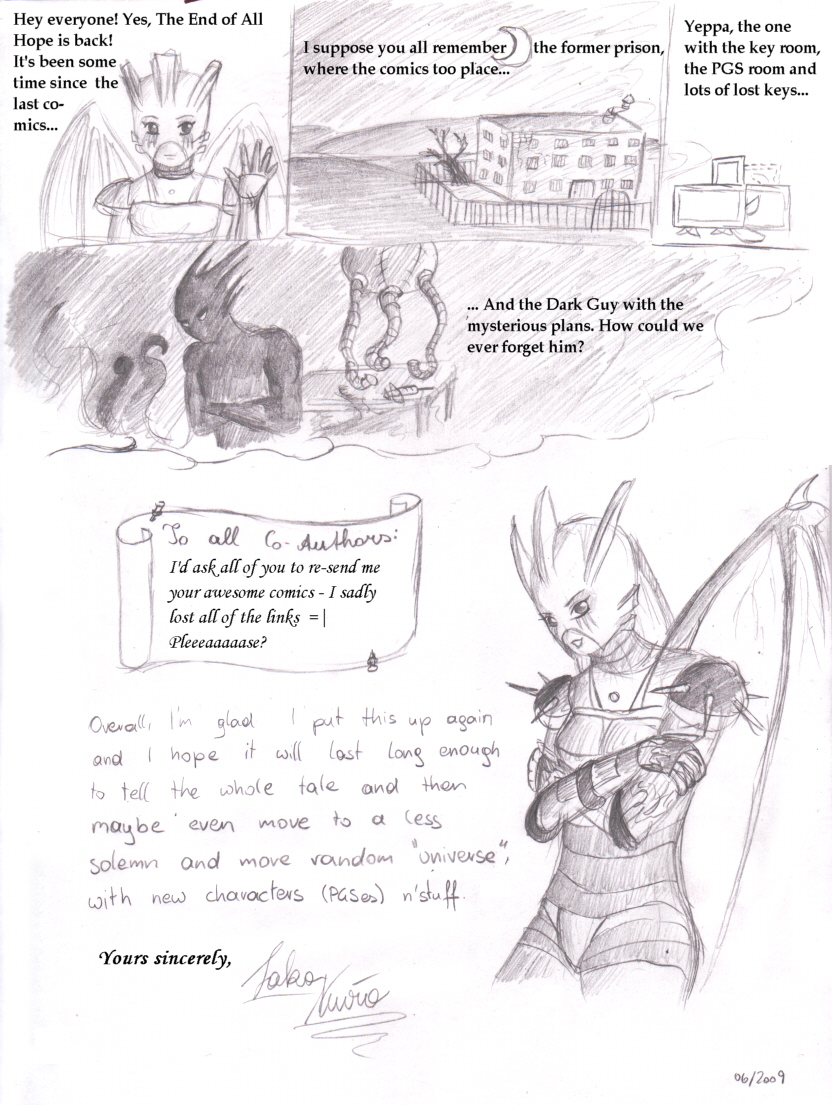 Hey everyone! Yes, The End of All
Hope is back!
It's been some
time since the
last co-
mics...
I suppose you all remember the former prison,
where the comics too place...
Yeppa, the one
with the key room,
the PGS room and
lots of lost keys...
... And the Dark Guy with the
mysterious plans. How could we
ever forget him?
To all Co-Authors:
I'd ask all of you to re-send me
your awesome comics - I sadly
lost all of the links =|
Pleeeaaaaase?
Overall, I'm glad I put this up again
and I hope it will last long enough
to tell the whole tale and then
maybe even move to a less
solemn and more random "universe",
with new characters (PGSes) n'stuff.
Yours sincerely,
06/2009